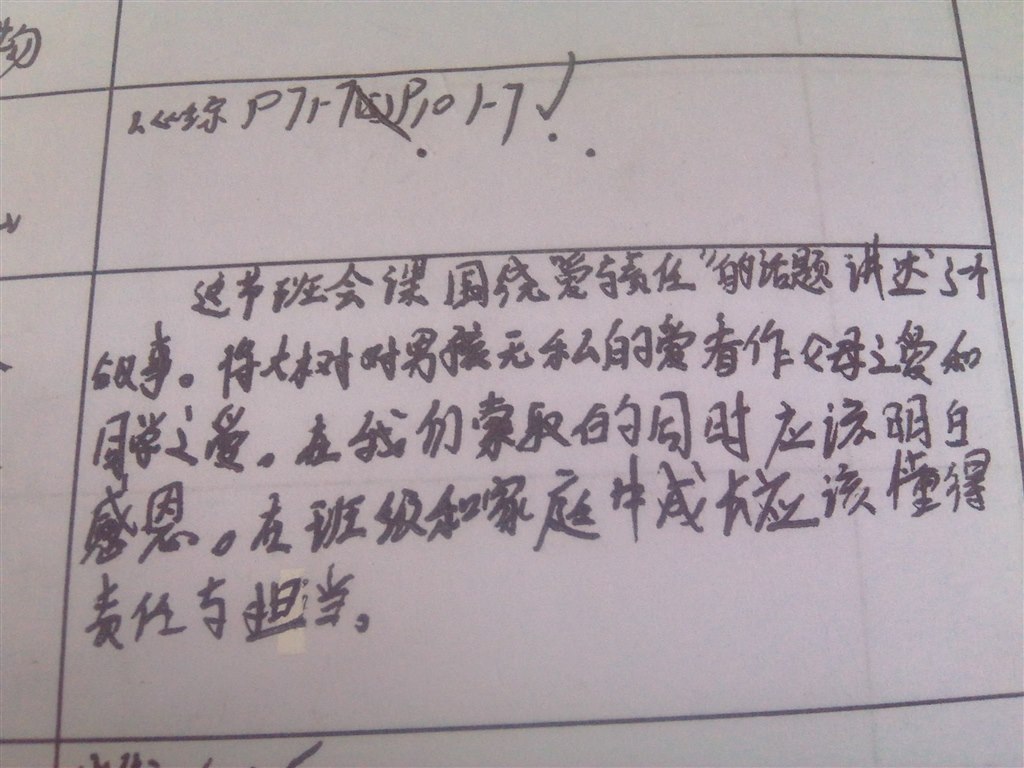 物
练 P7 1-7 P10 1-7 ✓
这节班会课围绕"爱与责任"的话题讲述了一个
故事。将大树对男孩无私的爱看作父母之爱和
同学之爱。在我们索取的同时应该明白
感恩。在班级和家庭中成长应该懂得
责任与担当。